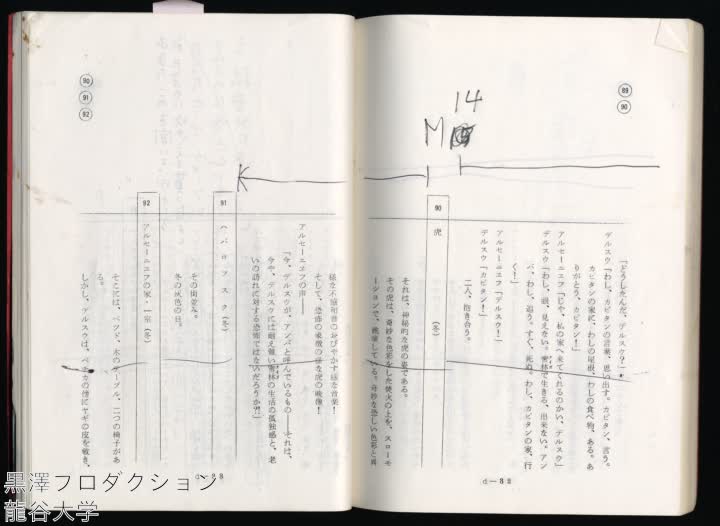 89
90
14
M
「どうしたんだ、デルスウ？」
デルスウ「わし、カピタンの言葉、思い出す。カピタン、言う。
カピタンの家に、わしの屋根、わしの食べ物、ある。あ
りがとう、カピタン！」
アルセーニエフ「じゃ、私の家へ来てくれるのかい、デルスウ」
デルスウ「わし、眼、見えない。密林で生きる、出来ない。アン
バ、わし、追う。すぐ、死ぬ。わし、カピタンの家、行
く！」
アルセーニエフ「デルスウ！」
デルスウ「カピタン！」
二人、抱き合う。
90
虎
（冬）
それは、神秘的な虎の姿である。
その虎は、奇妙な色彩をした焚火の上を、スローモ
ーションで、跳躍している。奇妙な恐しい色彩と異
d—32
90
91
92
K
様な不協和音のおびやかす様な音楽！
そして、恐怖の象徴の様な虎の映像！
アルセーニエフの声——
「今、デルスウが、アンバと呼んでいるもの——それは、
今や、デルスウには耐え難い密林の生活の孤独感と、老
いの訪れに対する恐怖ではないだろうか？」
91
ハバロフスク（冬）
その街並み。
冬の灰色の日。
92
アルセーニエフの家・一室（冬）
そこには、ベッド、木のテーブル、二つの椅子があ
る。
しかし、デルスウは、ペチカの傍にヤギの皮を敷き、
d—33
黒澤プロダクション
龍谷大学